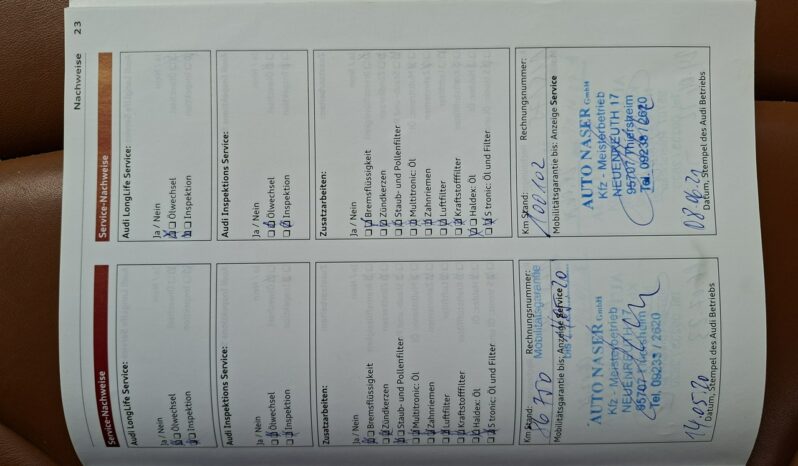 Nachweise 23
Service-Nachweise
Audi LongLife Service:
Ja / Nein
Ölwechsel
Inspektion
Audi Inspektions Service:
Ja / Nein
Ölwechsel
Inspektion
Zusatzarbeiten:
Ja / Nein
Bremsflüssigkeit
Zündkerzen
Staub- und Pollenfilter
Multitronic: Öl
Zahnriemen
Luftfilter
Kraftstofffilter
Haldex: Öl
S tronic: Öl und Filter
Km Stand: Rechnungsnummer:
86750 Mobilitätsgarantie
bis
Mobilitätsgarantie bis: Anzeige Service
AUTO NASER GmbH
Kfz - Meisterbetrieb
NEUENREUTH 17
95707 Thiersheim
Tel. 09233 / 2620
14.05.20
Datum, Stempel des Audi Betriebs
Service-Nachweise
Audi LongLife Service:
Ja / Nein
Ölwechsel
Inspektion
Audi Inspektions Service:
Ja / Nein
Ölwechsel
Inspektion
Zusatzarbeiten:
Ja / Nein
Bremsflüssigkeit
Zündkerzen
Staub- und Pollenfilter
Multitronic: Öl
Zahnriemen
Luftfilter
Kraftstofffilter
Haldex: Öl
S tronic: Öl und Filter
Km Stand: Rechnungsnummer:
100102
Mobilitätsgarantie bis: Anzeige Service
AUTO NASER GmbH
Kfz - Meisterbetrieb
NEUENREUTH 17
95707 Thiersheim
Tel. 09233 / 2620
08.06.21
Datum, Stempel des Audi Betriebs